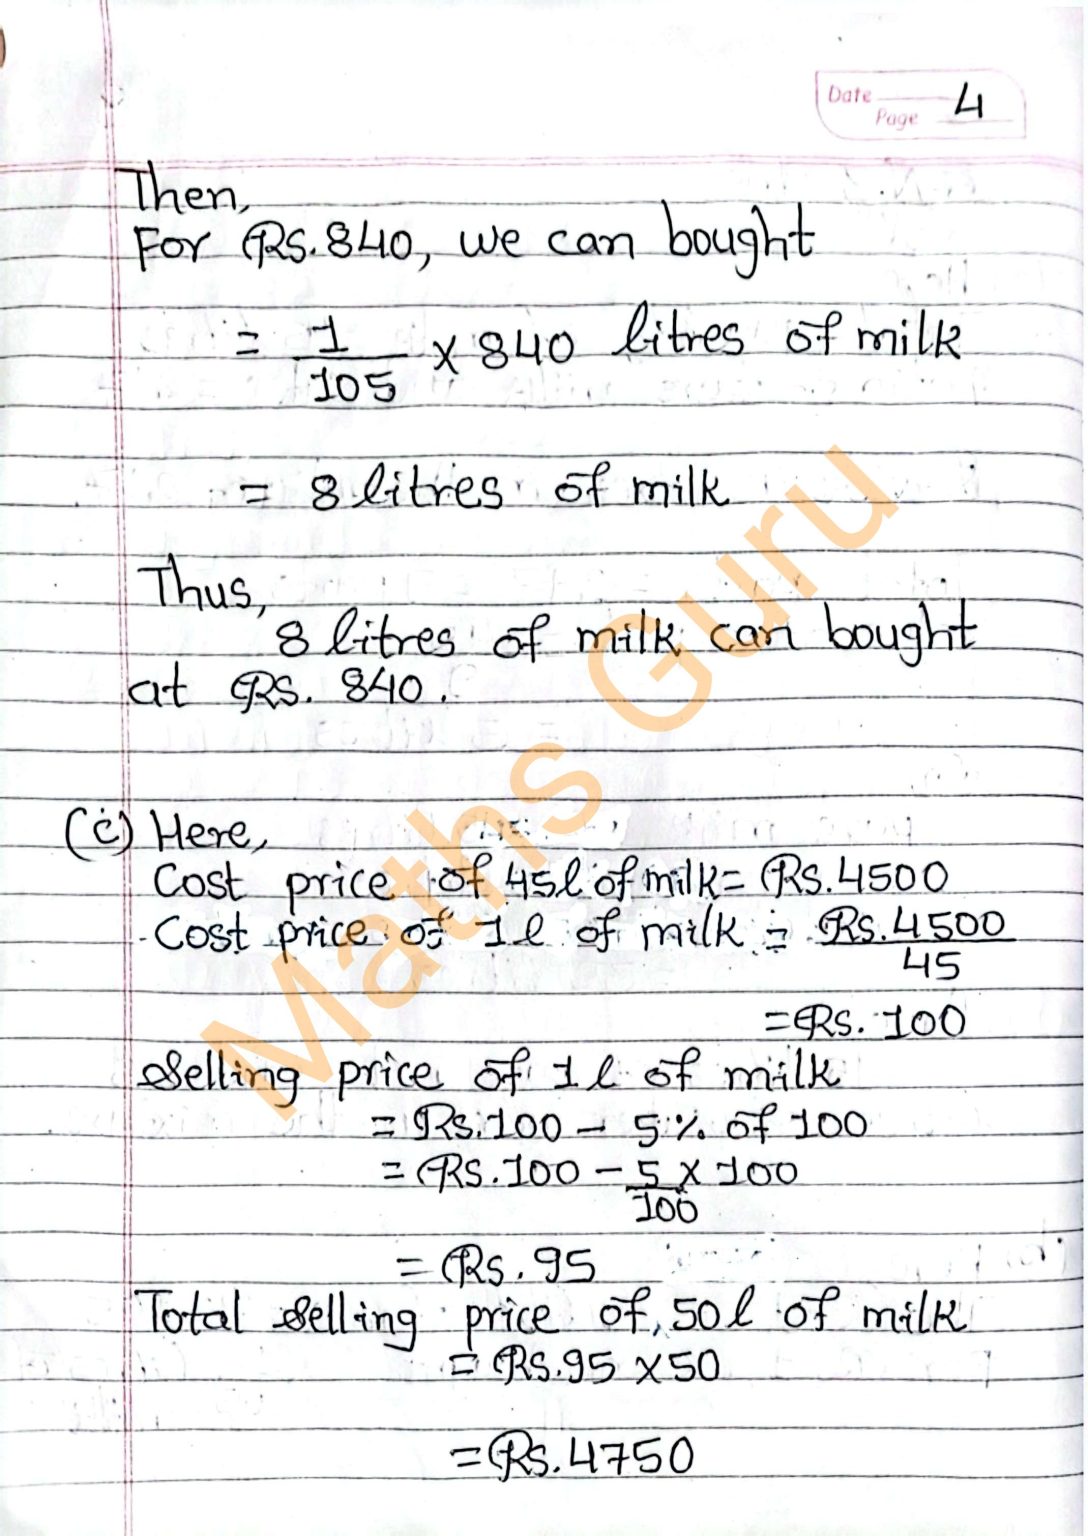 Date 4
Page
Then,
For Rs.840, we can bought
= 1/105 × 840 litres of milk
= 8 litres of milk
Thus,
8 litres of milk can bought
at Rs. 840.
(c) Here,
Cost price of 45l of milk = Rs.4500
Cost price of 1l of milk = Rs.4500/45
= Rs. 100
Selling price of 1l of milk
= Rs.100 - 5% of 100
= Rs.100 - 5/100 × 100
= Rs.95
Total selling price of 50l of milk
= Rs.95 × 50
= Rs.4750
Maths Guru